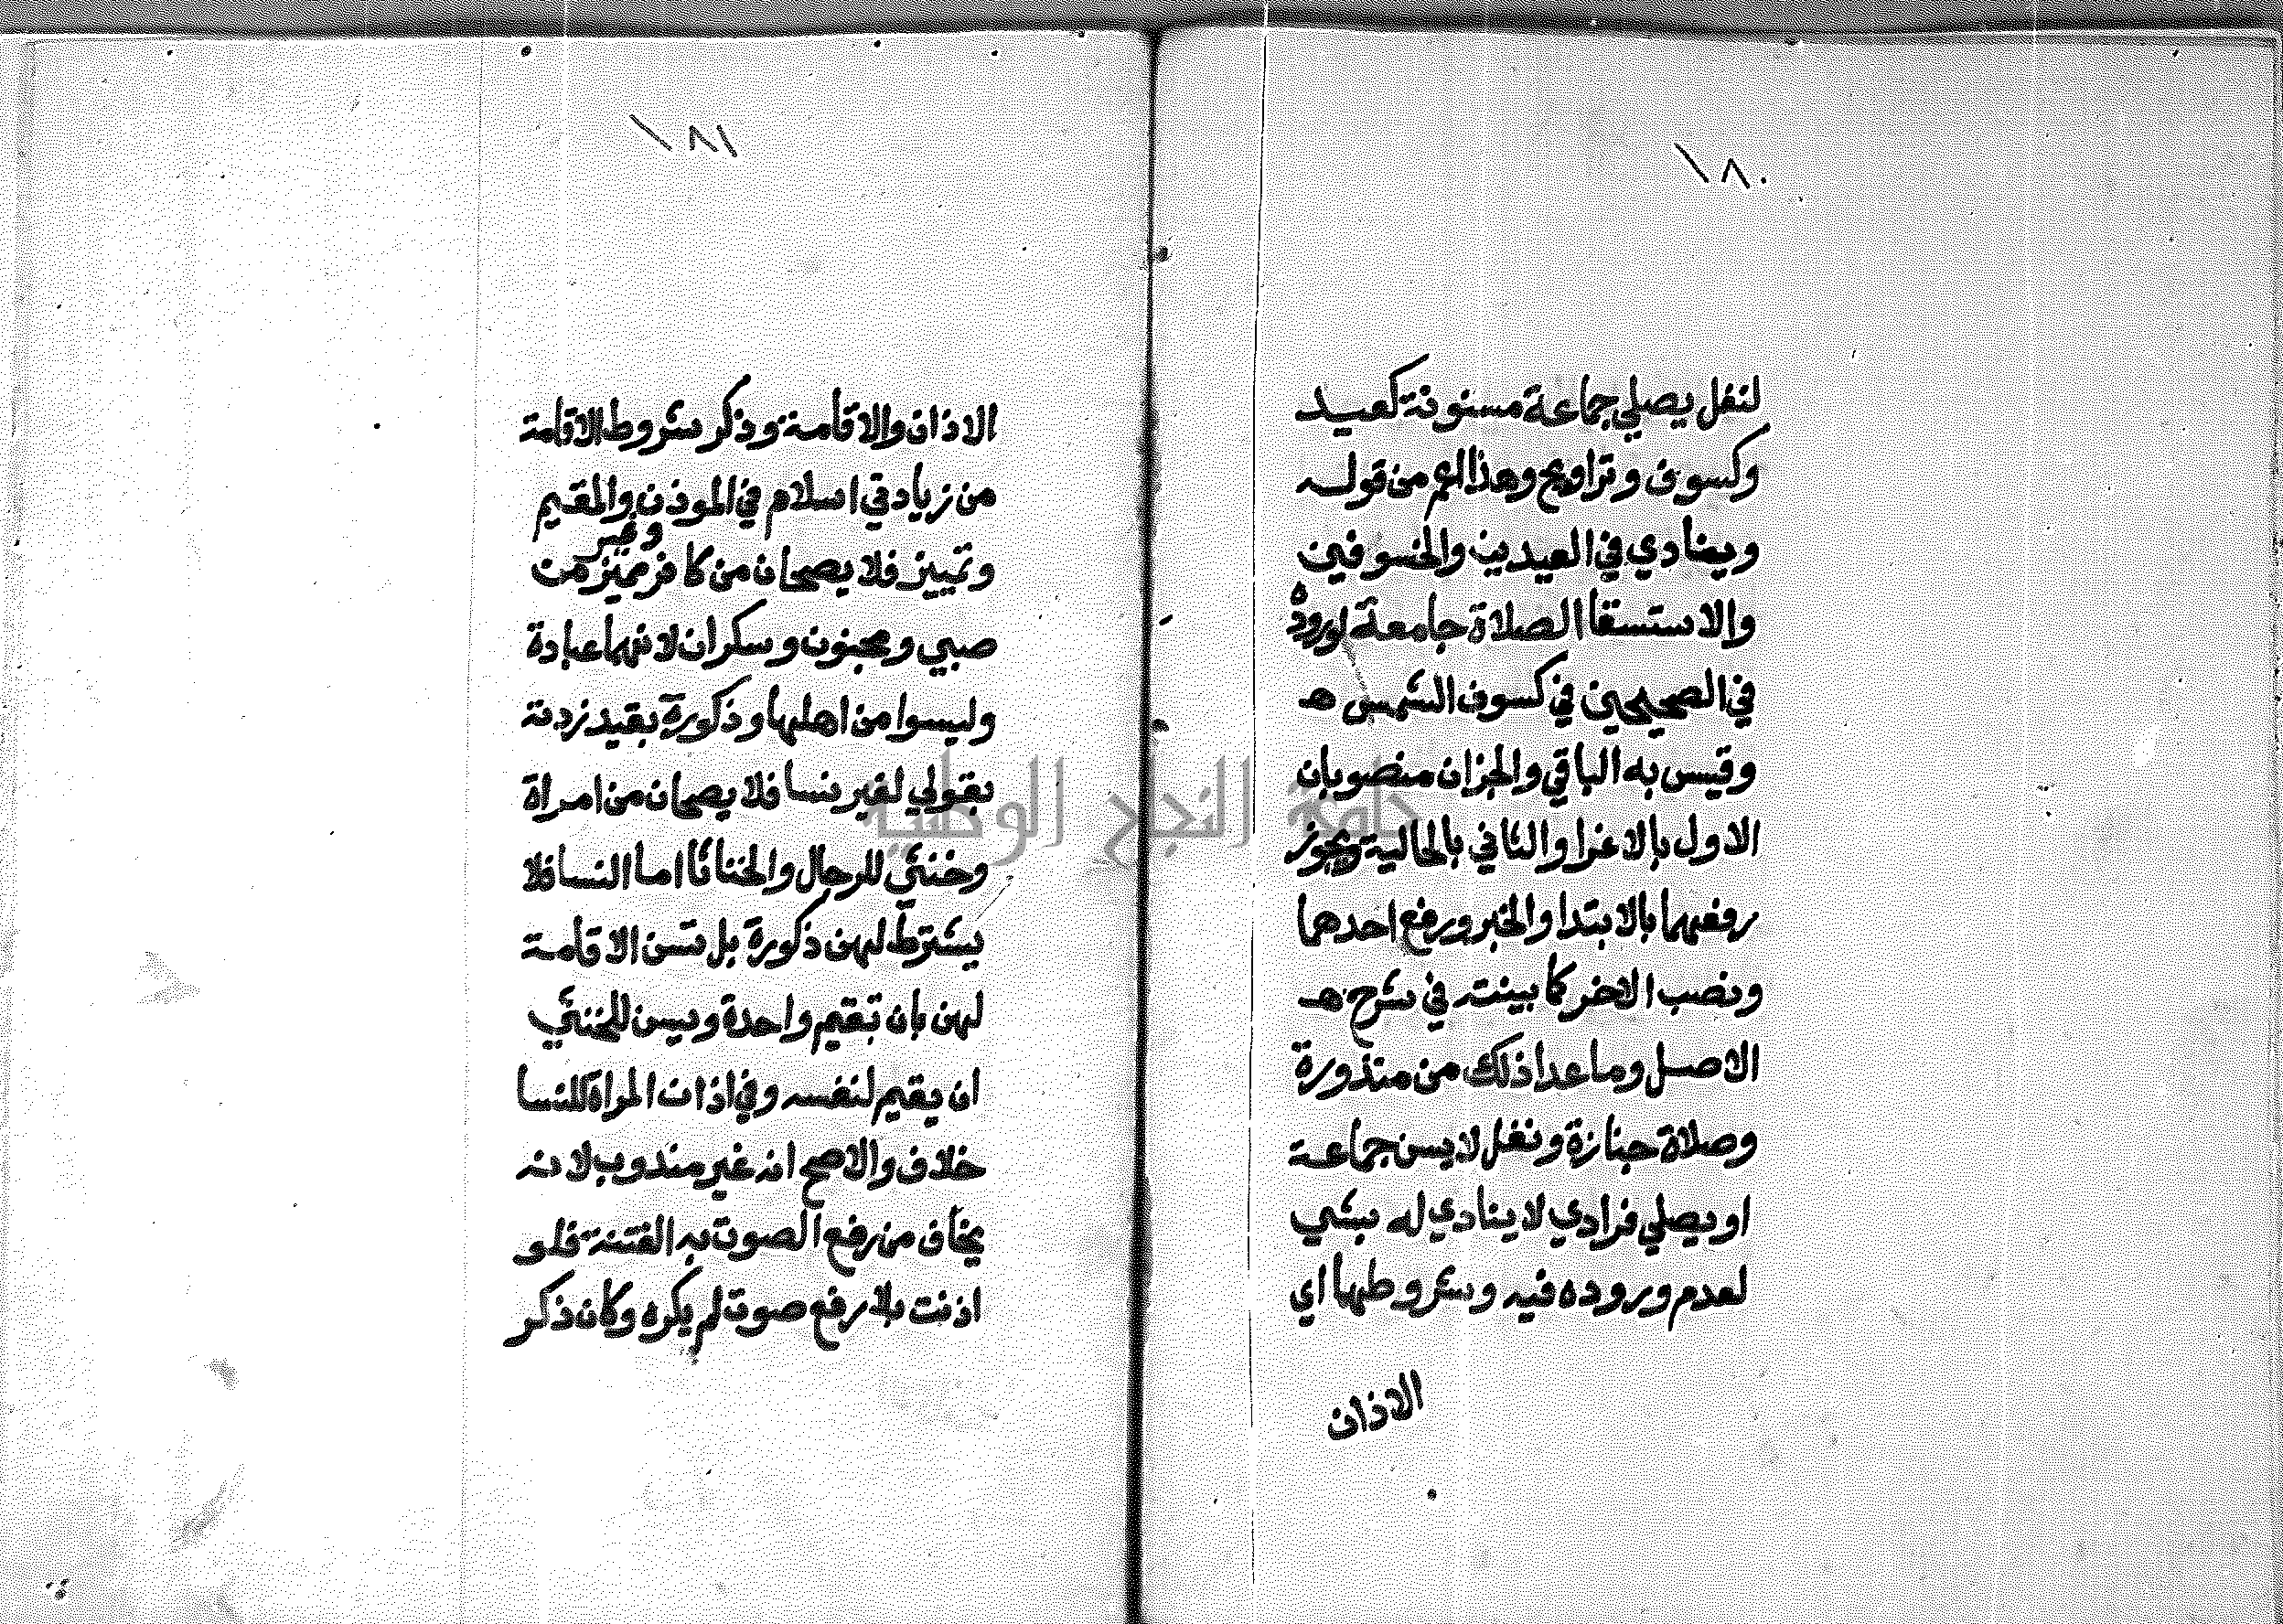 ١٨٠
لنفل يصلي جماعة مسنونة كعيد
وكسوف وتراويح وهذا اعم من قوله
وينادي في العيدين والخسوفين
والاستسقا الصلاة جامعة لوروده
في الصحيحين في كسوف الشمس هـ
وقيس به الباقي والجزان منصوبان
الاول بالاغرا والثاني بالحالية ويجوز
رفعهما بالابتدا والخبر ورفع احدهما
ونصب الاخر كما بينته في شرح هـ
الاصل وما عدا ذلك من منذورة
وصلاة جنازة ونفل لا يسن جماعة
او يصلي فرادي لا ينادي له بشي
لعدم وروده فيه وشروطهما اي
الاذان
١٨١
الاذان والاقامة وذكر شروط الاقامة
من زيادتي اسلام في الموذن والمقيم
وتمييز فلا يصحان من كافر وغير مميز من
صبي ومجنون وسكران لانهما عبادة
وليسوا من اهلها وذكورة بقيد زدته
بقولي لغير نسا فلا يصحان من امراة
وخنثي للرجال والخناثا اما النسا فلا
يشترط لهن ذكورة بل تسن الاقامة
لهن بان تقيم واحدة ويسن للخنثي
ان يقيم لنفسه وفي اذان المراة للنسا
خلاف والاصح انه غير مندوب لانه
يخاف من رفع الصوت به الفتنة فلو
اذنت بلا رفع صوت لم يكره وكان ذكر